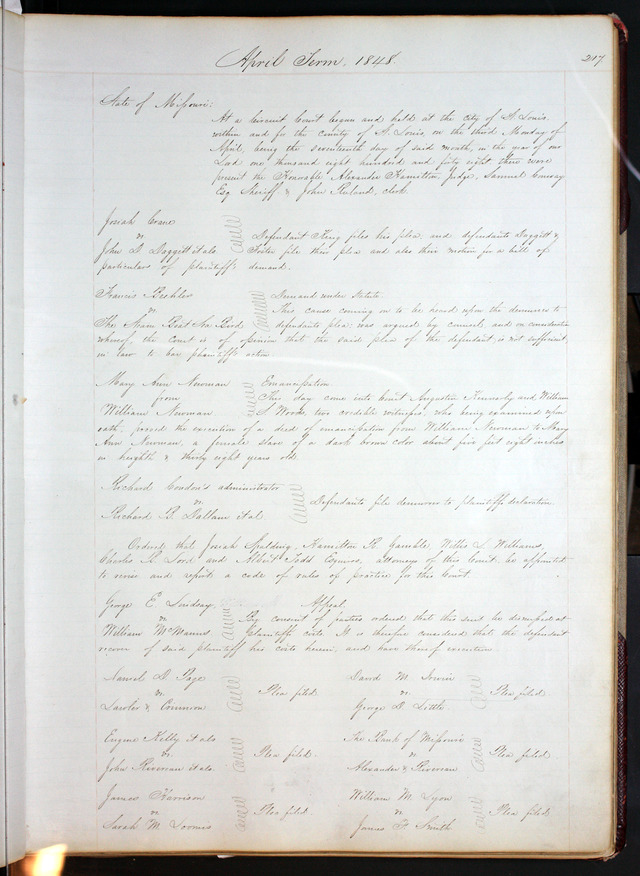 April Term, 1848.
217
State of Missouri:
At a Circuit Court began and held at the city of St. Louis.
within and for the county of St. Louis, on the third Monday of
April, being the seventeenth day of said month, in the year of our
Lord one thousand eight hundred and forty eight there were
present the Honorable Alexander Hamilton, judge, Samuel Conway
Esq Sheriff & John Ruland, clerk
Josiah Crane
vs
John D. Daggett et als
Defendant King files his plea, and defendants Daggett &
Foster file their plea and also their motion for a bill of
particulars of plaintiff's demand.
Francis Beehler
vs
The Steam Boat Sea Bird
Demand under Statute.
This cause coming on to be heard upon the demurrer to
defendants plea, was argued by counsel, and on consideration
whereof the Court is of opinion that the said plea of the defendant, is not sufficient
in law to bar plaintiff's action
Mary Ann Newman
from
William Newman
Emancipation.
This day come into Court Augustin Kennerly and William
S Woods, two credible witnesses, who being examined upon
oath, proved the execution of a deed of emancipation from William Newman to Mary
Ann Newman, a female slave of a dark brown color about five feet eight inches
in heighth & thirty eight years old.
Richard Condon's administrator
vs
Richard B. Dallam et al.
Defendants file demurrer to plaintiffs declaration.
Ordered that Josiah Spalding, Hamilton R. Gamble, Willis L. Williams,
Charles S. Lord and Albert Todd Esquires, attorneys of this Court, be appointed
to revise and report a code of rules of practice for this Court
George E. Lindsay
vs
William McManus
Appeal,
By consent of parties ordered that this suit be dismissed at
plaintiffs costs. It is therefore considered that the defendant
recover of said plaintiff his costs herein, and have thereof execution.
Daniel D. Page
vs
Lawler &
Plea filed.
David M. Irwin
vs
George D. Little.
Plea filed
Eugene Kelly et als
vs
John Riverman et als.
Plea filed.
The Bank of Missouri
vs
Alexander & Riverman
Plea filed
James Harrison
vs
Sarah M. Loomis
Plea filed.
William M. Lyon
vs
James F. Smith
Plea filed